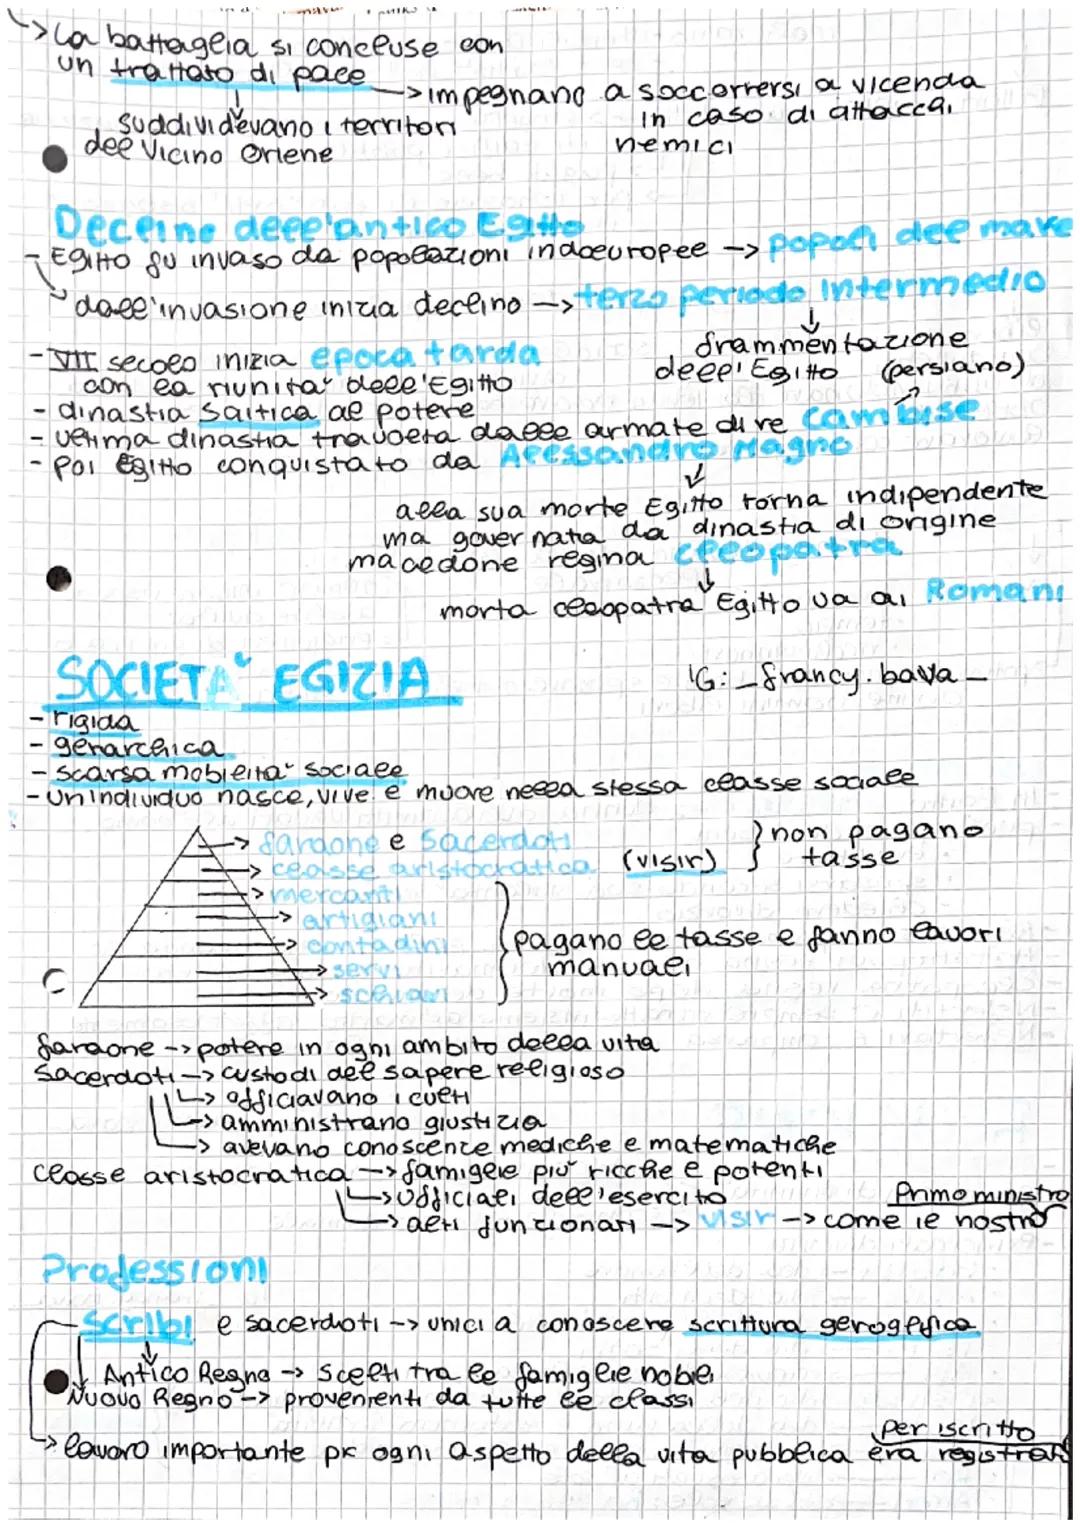 ↳ La battaglia si concluse con
un trattato di pace
→ impegnano a soccorrersi a vicenda
in caso di attacchi
nemici
suddividevano i territori
del Vicino Oriene
Declino dell'antico Egitto
- Egitto fu invaso da popolazioni indoeuropee → popoli del mare
↳ dall'invasione inizia declino → terzo periodo intermedio
↓
frammentazione
dell'Egitto (persiano)
- VII secolo inizia epoca tarda
con la riunita' dell'Egitto
- dinastia Saitica al potere
- ultima dinastia travolta dalle armate di re Cambise
- poi Egitto conquistato da Alessandro Magno
↓
alla sua morte Egitto torna indipendente
ma governata da dinastia di origine
macedone regina Cleopatra
↓
morta cleopatra Egitto va ai Romani
SOCIETA' EGIZIA
IG: _francy.bava_
- rigida
- gerarchica
- scarsa mobilita' sociale
- un individuo nasce, vive e muore nella stessa classe sociale
→ faraone e Sacerdoti
→ classe aristocratica (visir)
} non pagano
tasse
→ mercanti
→ artigiani
→ contadini
→ servi
→ schiavi
} pagano le tasse e fanno lavori
manuali
faraone → potere in ogni ambito della vita
Sacerdoti → custodi del sapere religioso
↳ officiavano i culti
↳ amministrano giustizia
↳ avevano conoscenze mediche e matematiche
classe aristocratica → famiglie piu' ricche e potenti
↳ ufficiali dell'esercito
↳ alti funzionari → visir → come il nostro Primo ministro
Professioni
- Scribi e sacerdoti → unici a conoscere scrittura geroglifica
↓ Antico Regno → scelti tra le famiglie nobili
↓ Nuovo Regno → provenienti da tutte le classi
→ lavoro importante pk ogni aspetto della vita pubblica era registrato per iscritto